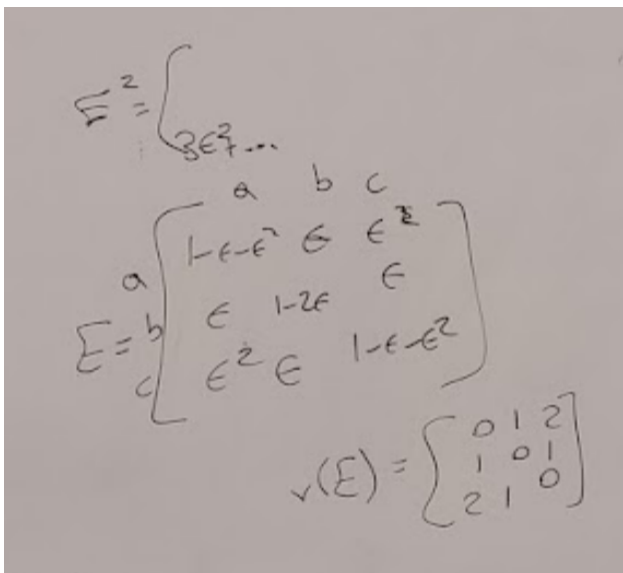 E² = [
3ε² + ...
a b c
a 1-ε-ε² ε ε²
E = b ε 1-2ε ε
c ε² ε 1-ε-ε²
v(E) = [ 0 1 2
1 0 1
2 1 0 ]